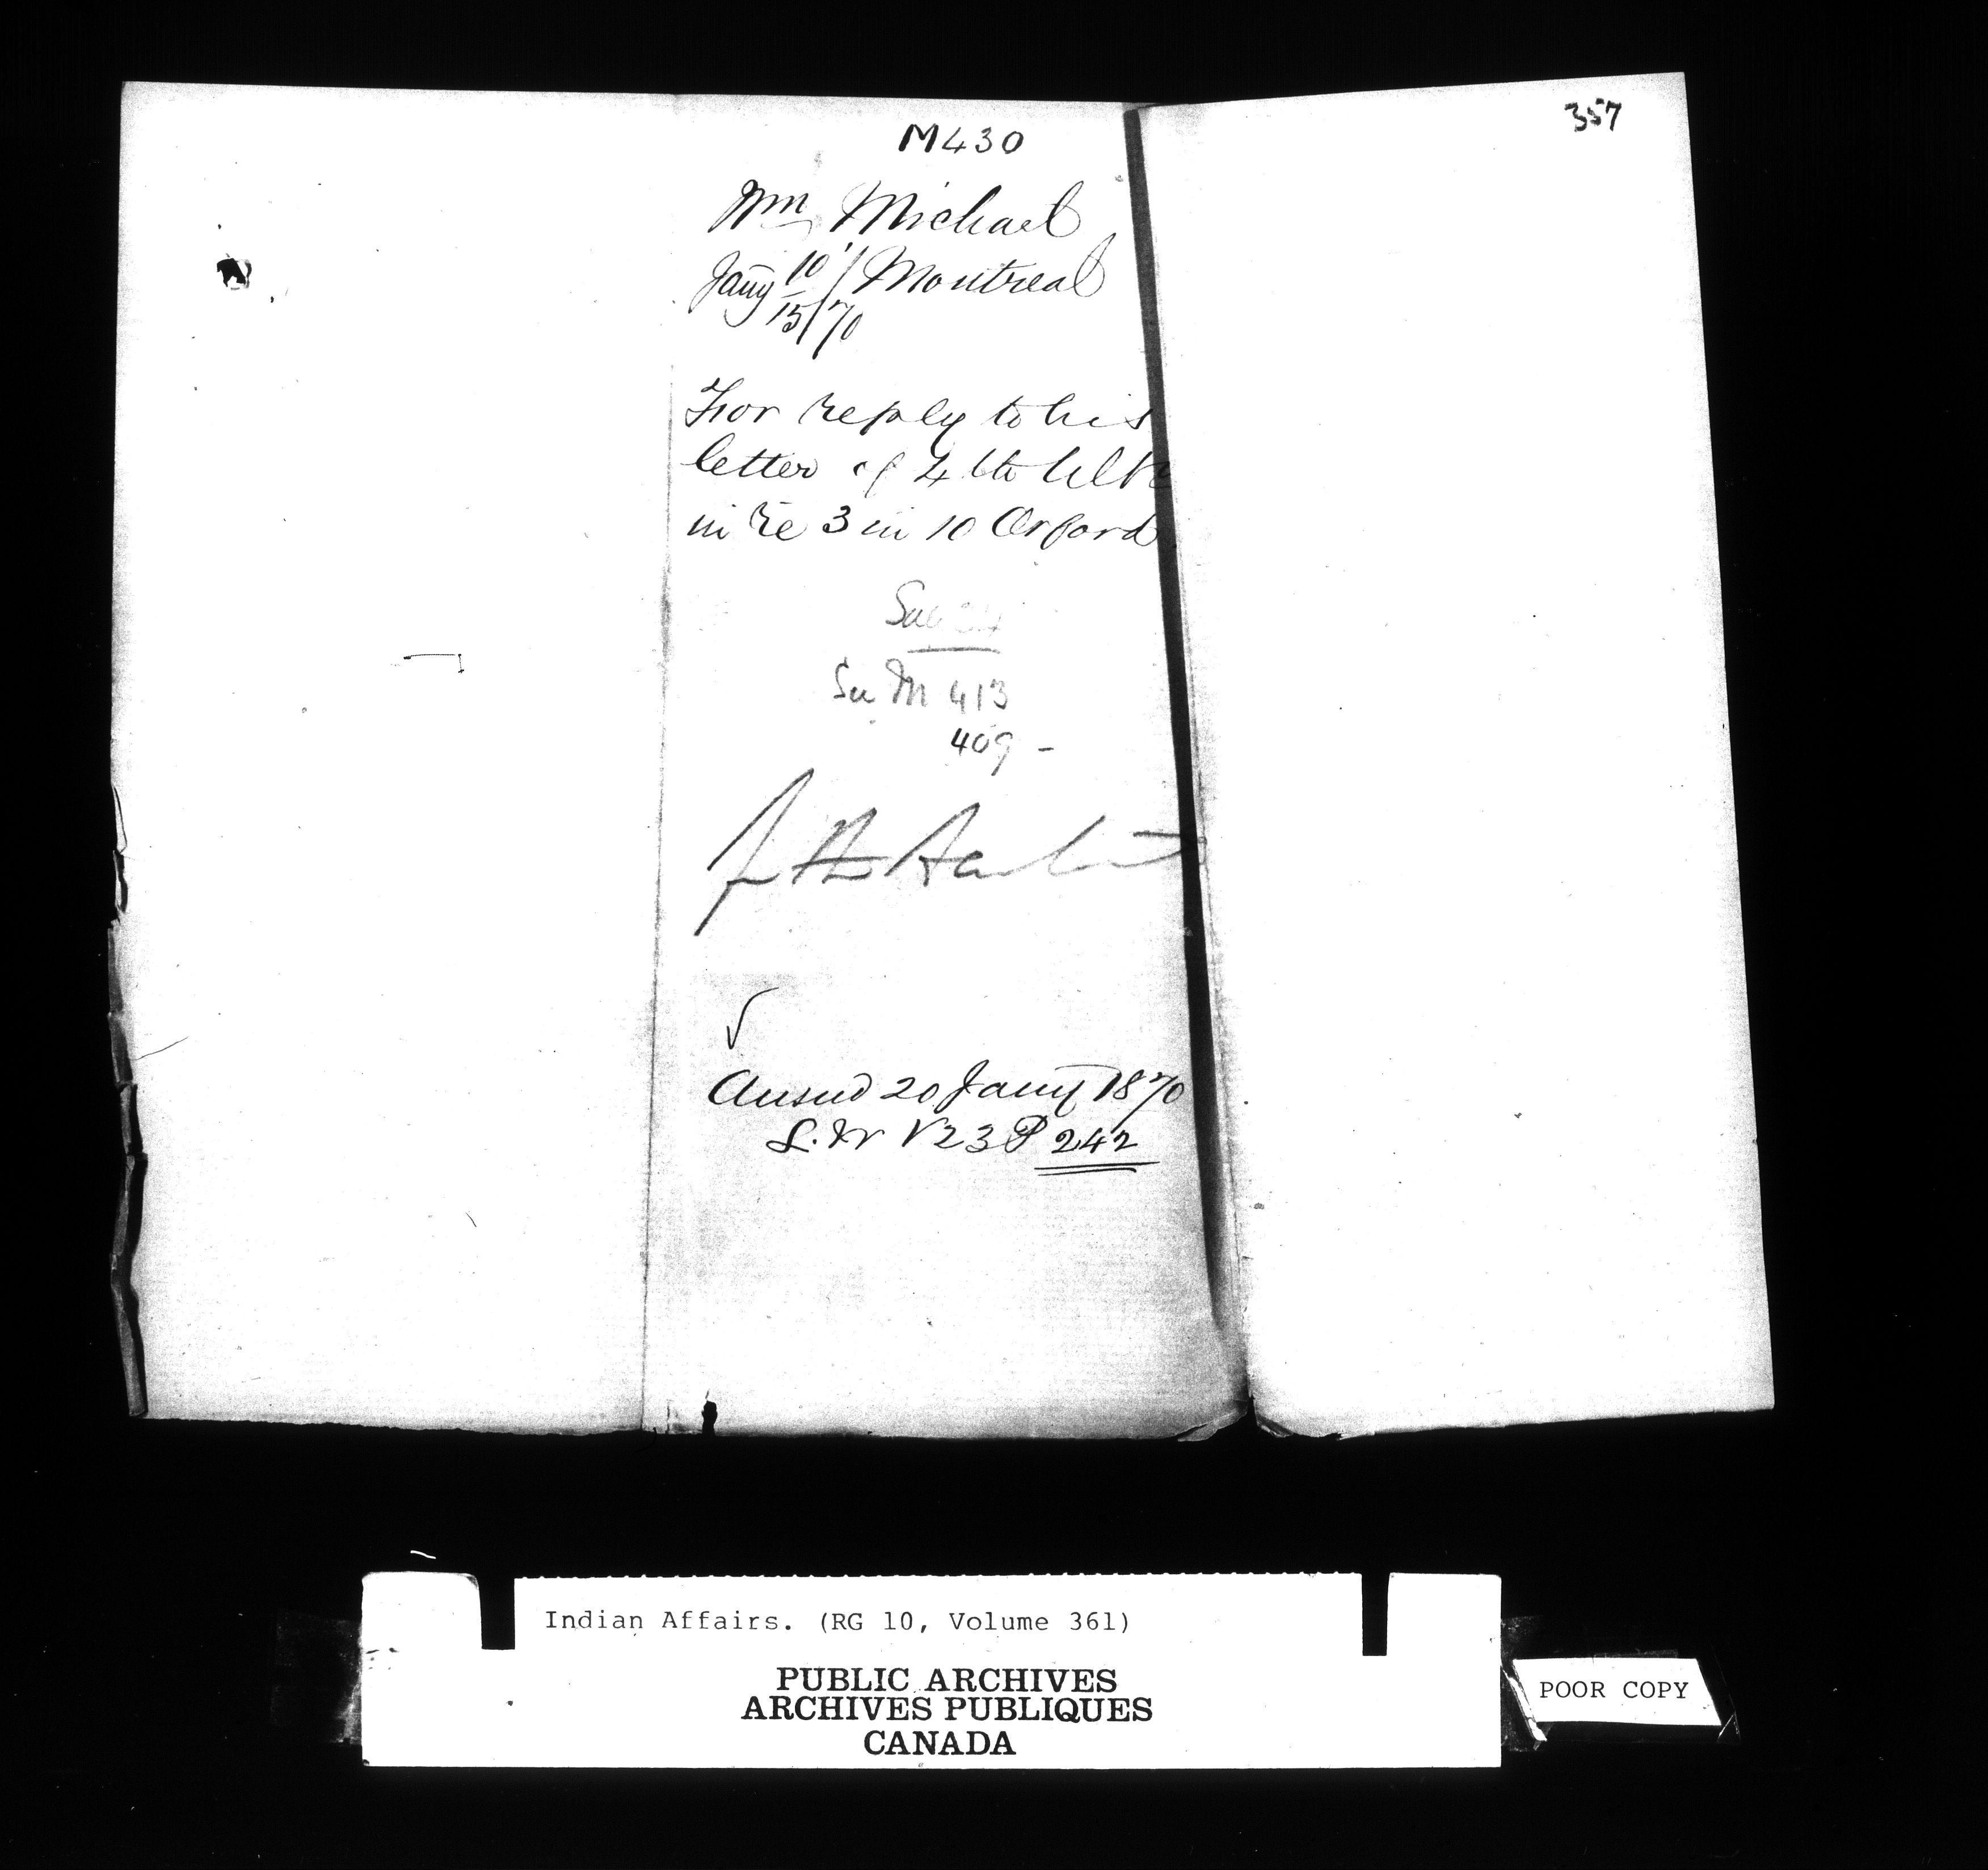 357
M430
Wm Michael
Jany 10/15/70 Montreal
For reply to his
letter of 4th Ulto
in re 3 in 10 Orford
See M 413
409 -
Ansd 20 Jany 1870
L. Bk V 23 P 242
Indian Affairs. (RG 10, Volume 361)
PUBLIC ARCHIVES
ARCHIVES PUBLIQUES
CANADA
POOR COPY